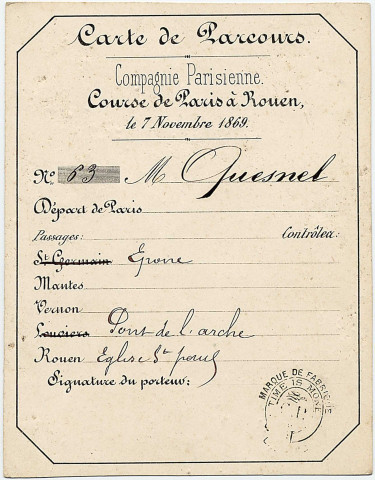 Carte de Parcours.
Compagnie Parisienne.
Course de Paris à Rouen,
le 7 Novembre 1869.
No. 63 M Quesnel
Départ de Paris
Passages: Contrôlea:
St Germain Epone
Mantes
Vernon
Louviers Pont de l'arche
Rouen Eglise St paul
Signature du porteur:
MARQUE DE FABRIQUE
TIME IS MONEY